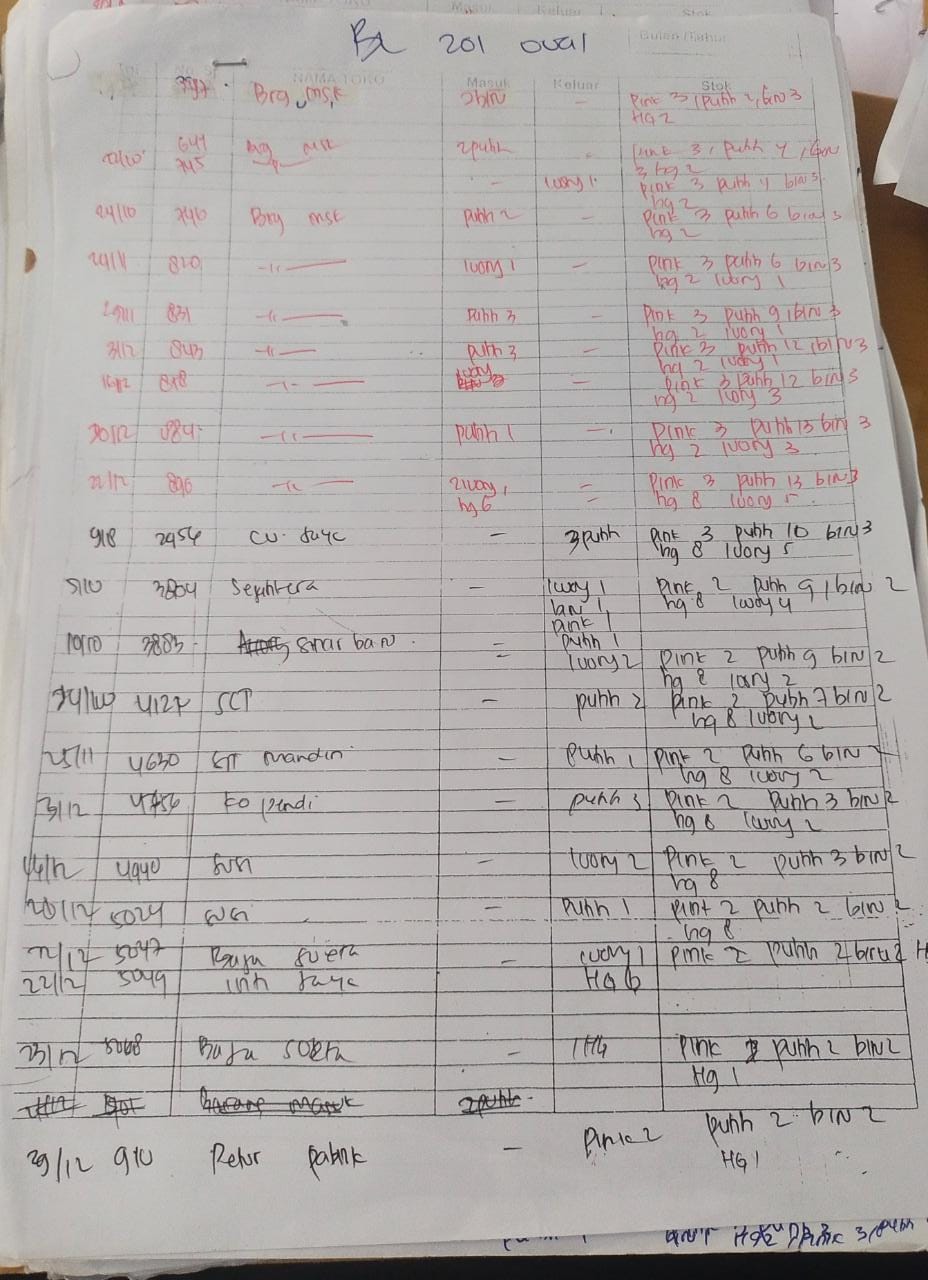 BL 201 oval
Bulan/Tahun
NAMA TOKO Masuk Keluar Stok
3587 Brg msk 2bin - Pink 3, putih 2, bin 3
HG 2
22/10 641 Brg msk 2putih - Pink 3, putih 4, bin
745 3 hg 2
- Ivory 1 Pink 3 putih 4 bin 3
hg 2
24/10 740 Brg msk putih 2 - Pink 3 putih 6 bin 3
hg 2
24/11 820 -"- Ivory 1 - Pink 3 putih 6 bin 3
hg 2 Ivory 1
29/11 831 -"- Putih 3 - Pink 3 putih 9, bin 3
hg 2 Ivory 1
3/12 843 -"- putih 3 - Pink 3 putih 12, bin 3
hg 2 Ivory 1
16/12 878 -"- Ivory = Pink 3 putih 12 bin 3
hg 2 Ivory 3
20/12 884 -"- putih 1 - Pink 3 putih 13 bin 3
hg 2 Ivory 3
22/12 896 -"- 2 Ivory, = Pink 3 putih 13 bin 3
hg 6 hg 8 Ivory 5
9/8 2954 CV. Jaya - 3 putih Pink 3 putih 10 bin 3
hg 8 Ivory 5
5/10 3804 Sejahtera - Ivory 1 Pink 2 putih 9, bin 2
bin 1, hg 8 Ivory 4
Pink 1
19/10 3883 sinar baru = putih 1
Ivory 2 Pink 2 putih 9 bin 2
hg 8 Ivory 2
24/10 4127 SCT - putih 2 Pink 2 putih 7 bin 2
hg 8 Ivory 2
25/11 4630 mandiri - Putih 1 Pink 2 putih 6 bin 2
hg 8 Ivory 2
3/12 4756 Ko pendi - putih 3 Pink 2 putih 3 bin 2
hg 8 Ivory 2
14/12 4940 Susi - Ivory 2 Pink 2 putih 3 bin 2
hg 8
20/12 5024 Susi - Putih 1 Pink 2 putih 2 bin 2
hg 8
22/12 5047 Baja Suera - Ivory 1 Pink 2 putih 2 biru 2 H
22/12 5049 Inti Jaya HG 6
23/12 5068 Baja Soera - 1 HG Pink 2 putih 2 bin 2
Hg 1
Barang Masuk 2putih
29/12 910 Retur Pabrik - Pink 2 putih 2 bin 2
HG 1